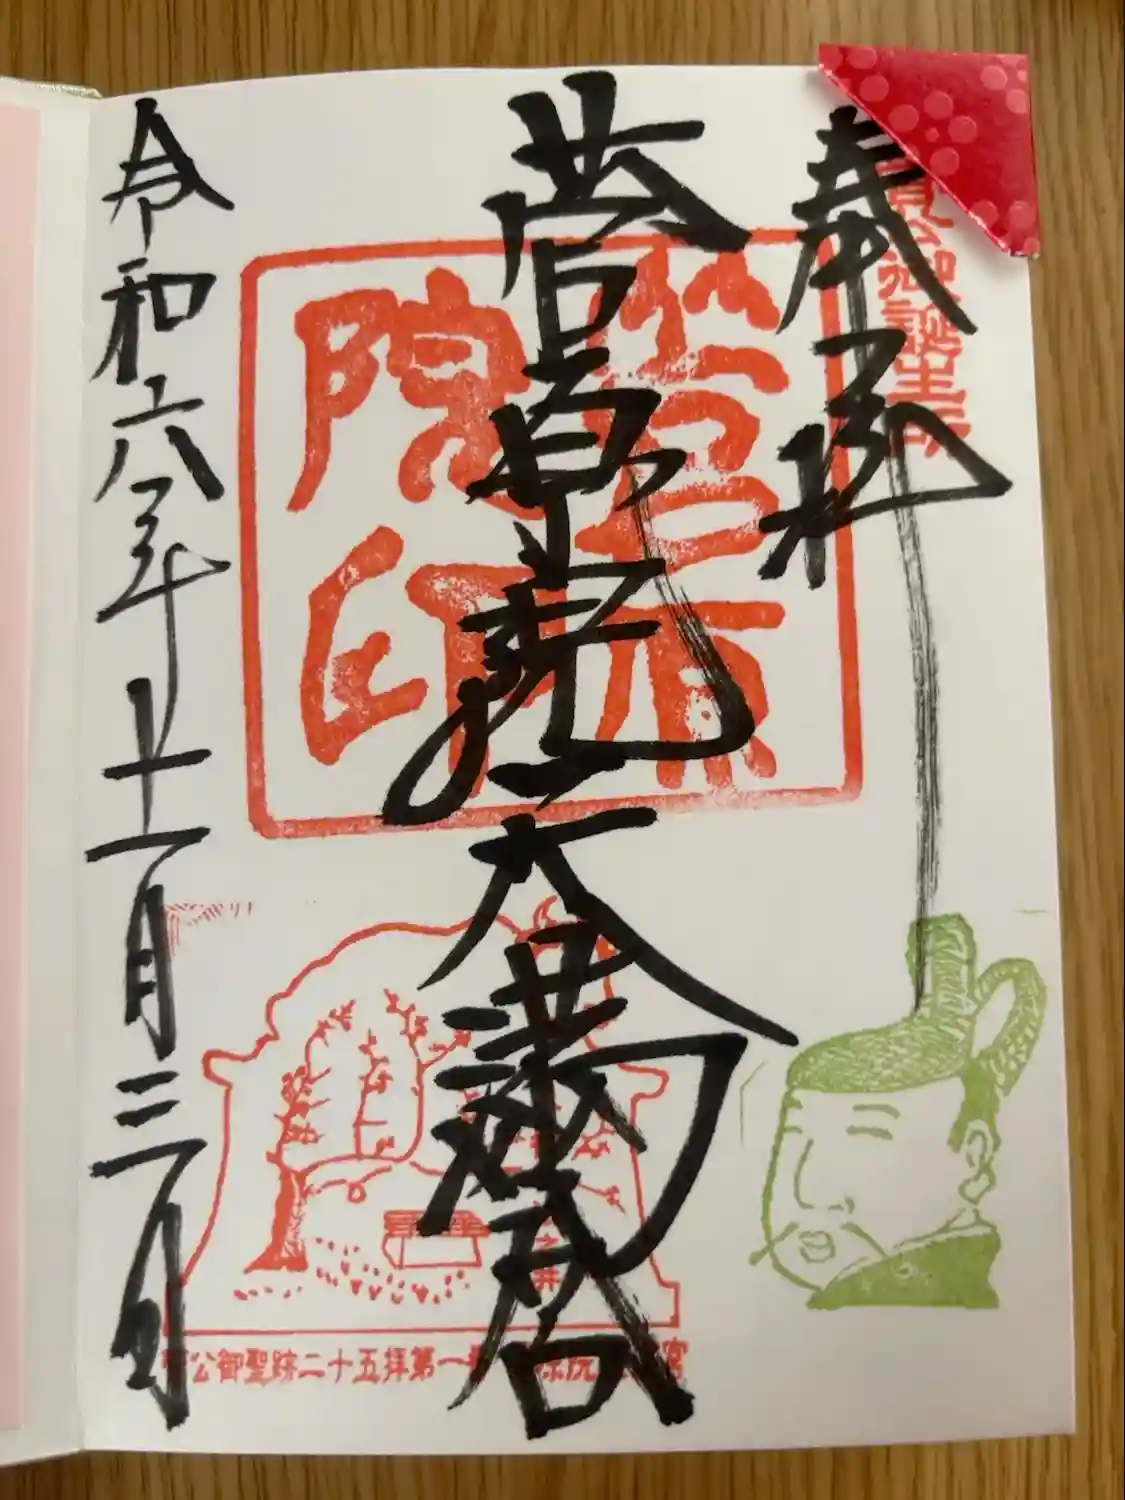 奉拝
菅公御誕生所
菅原院天満宮
菅原院印
令和六年十一月三日
之井
菅公御聖跡二十五拝第一番 菅原院天満宮